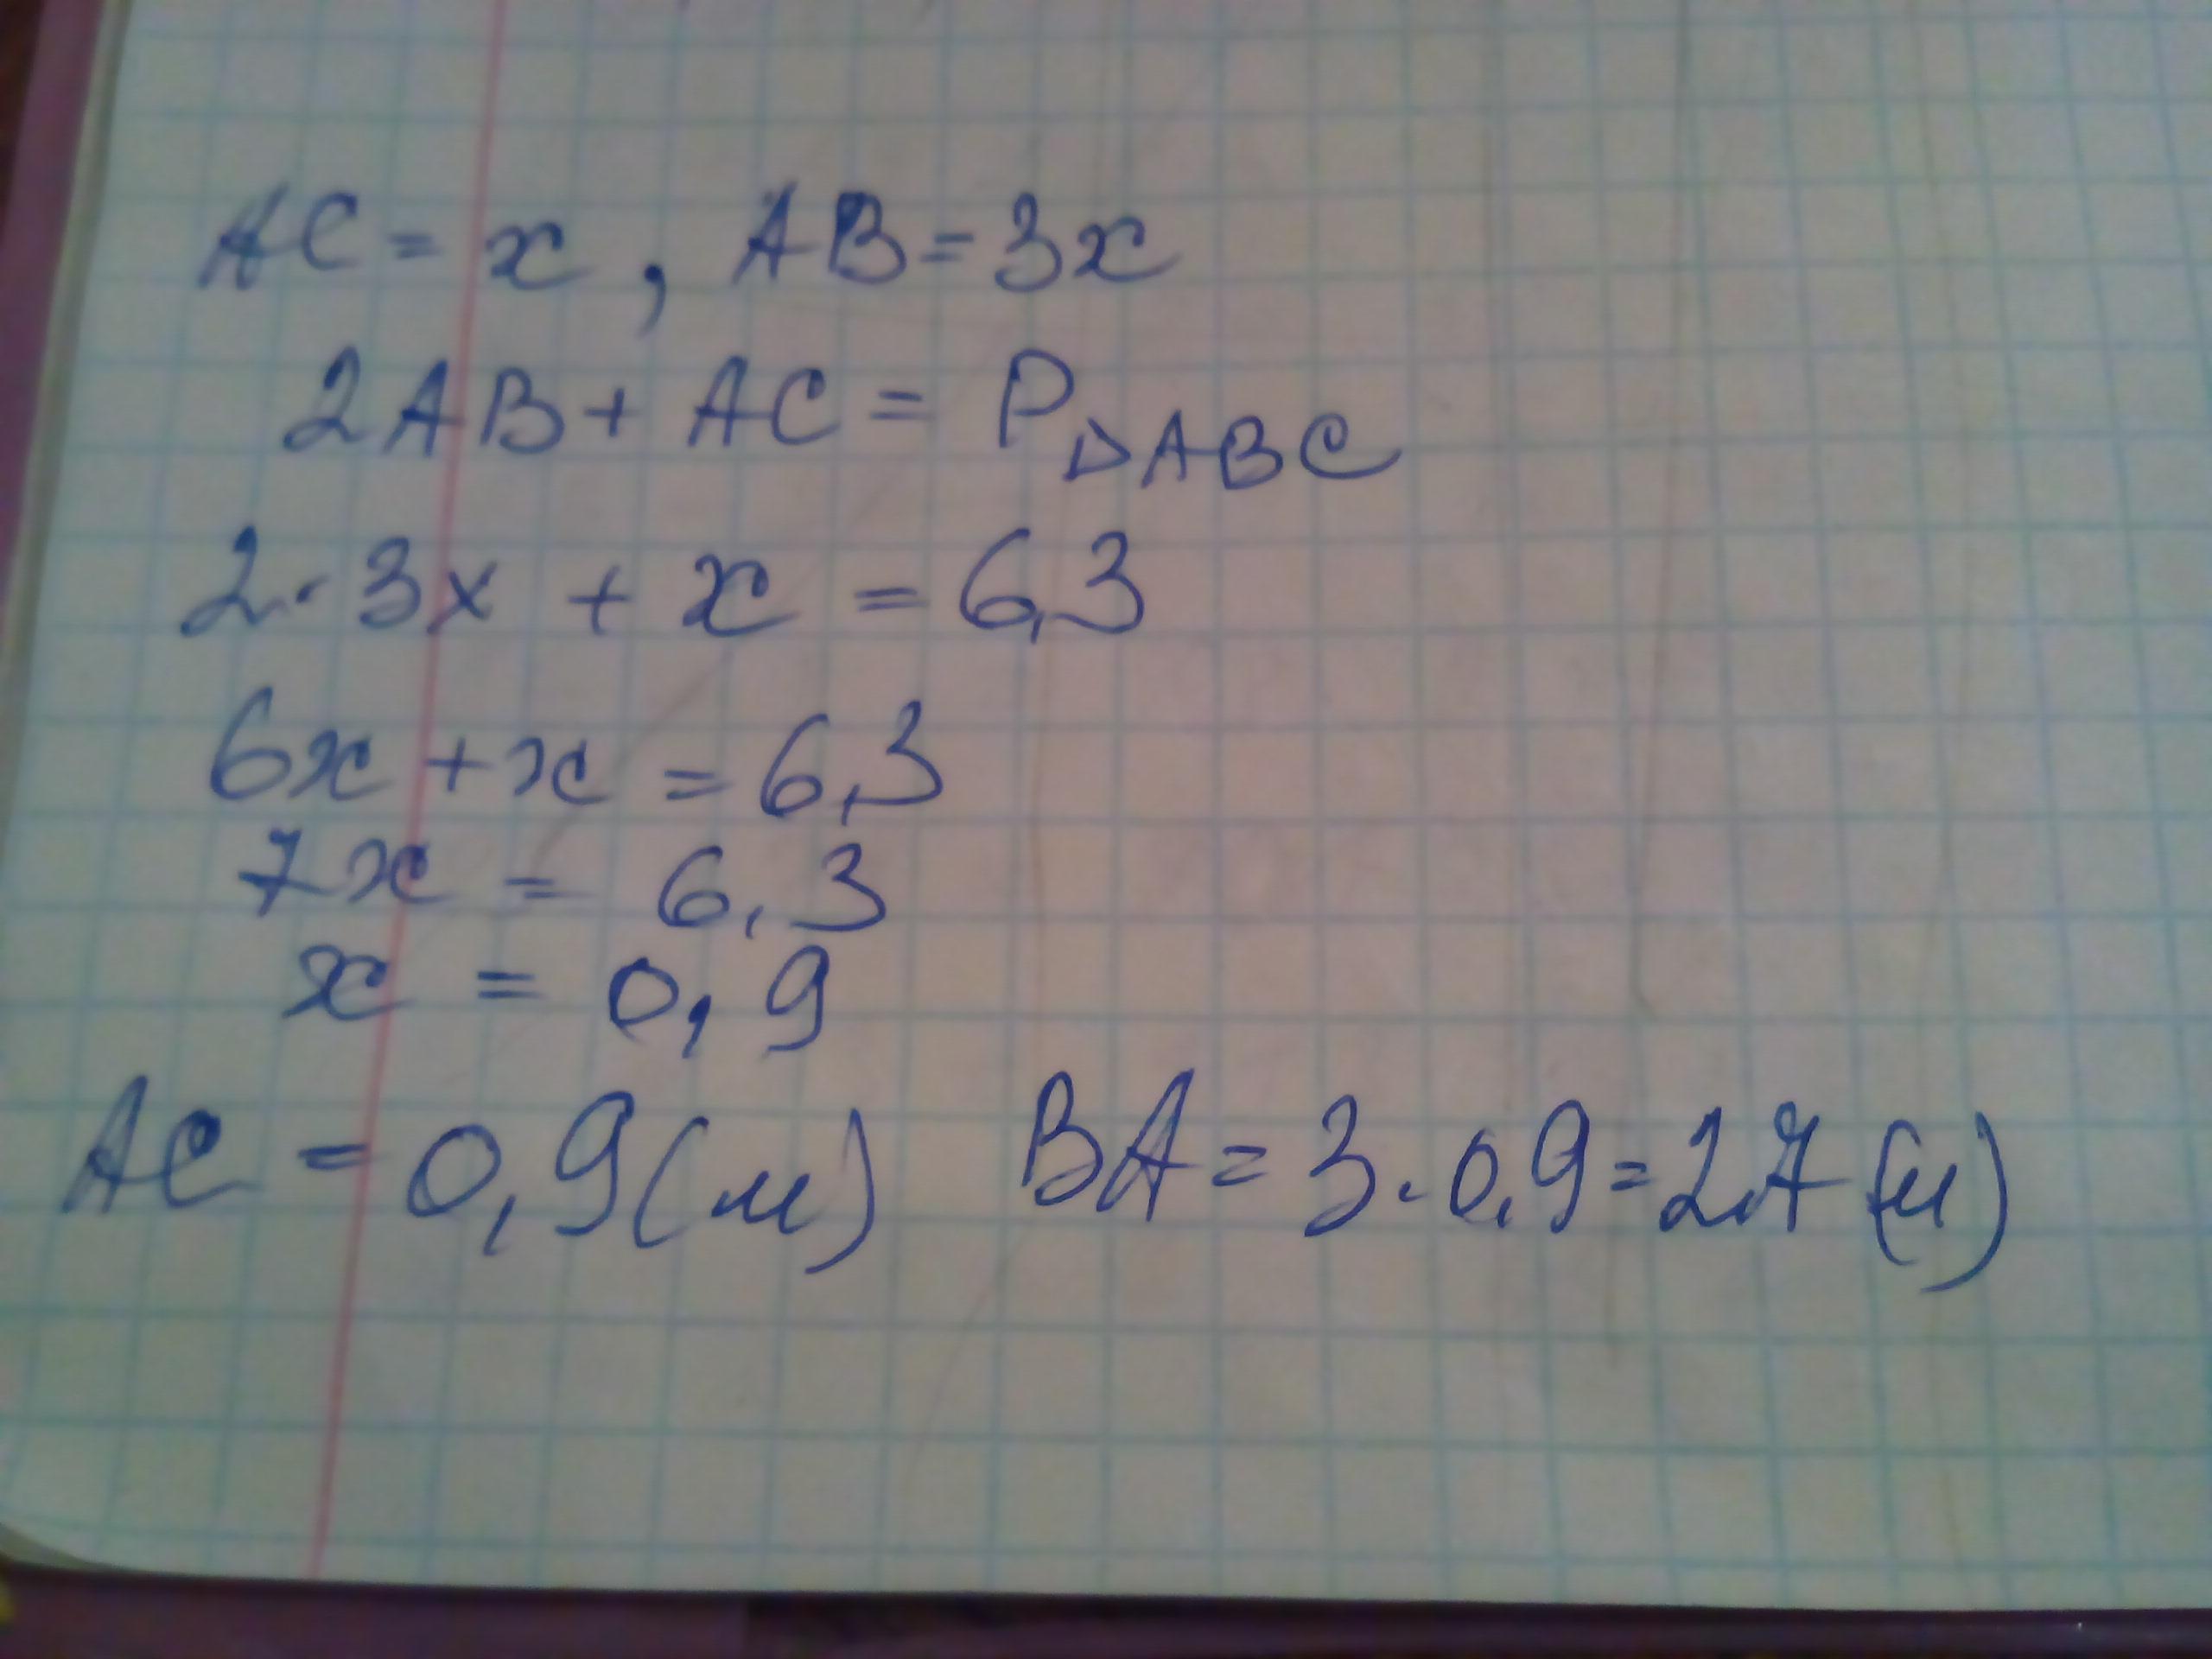 AC = x, AB = 3x
2AB + AC = P△ABC
2·3x + x = 6,3
6x + x = 6,3
7x = 6,3
x = 0,9
AC = 0,9 (м) BA = 3·0,9 = 2,7 (м)